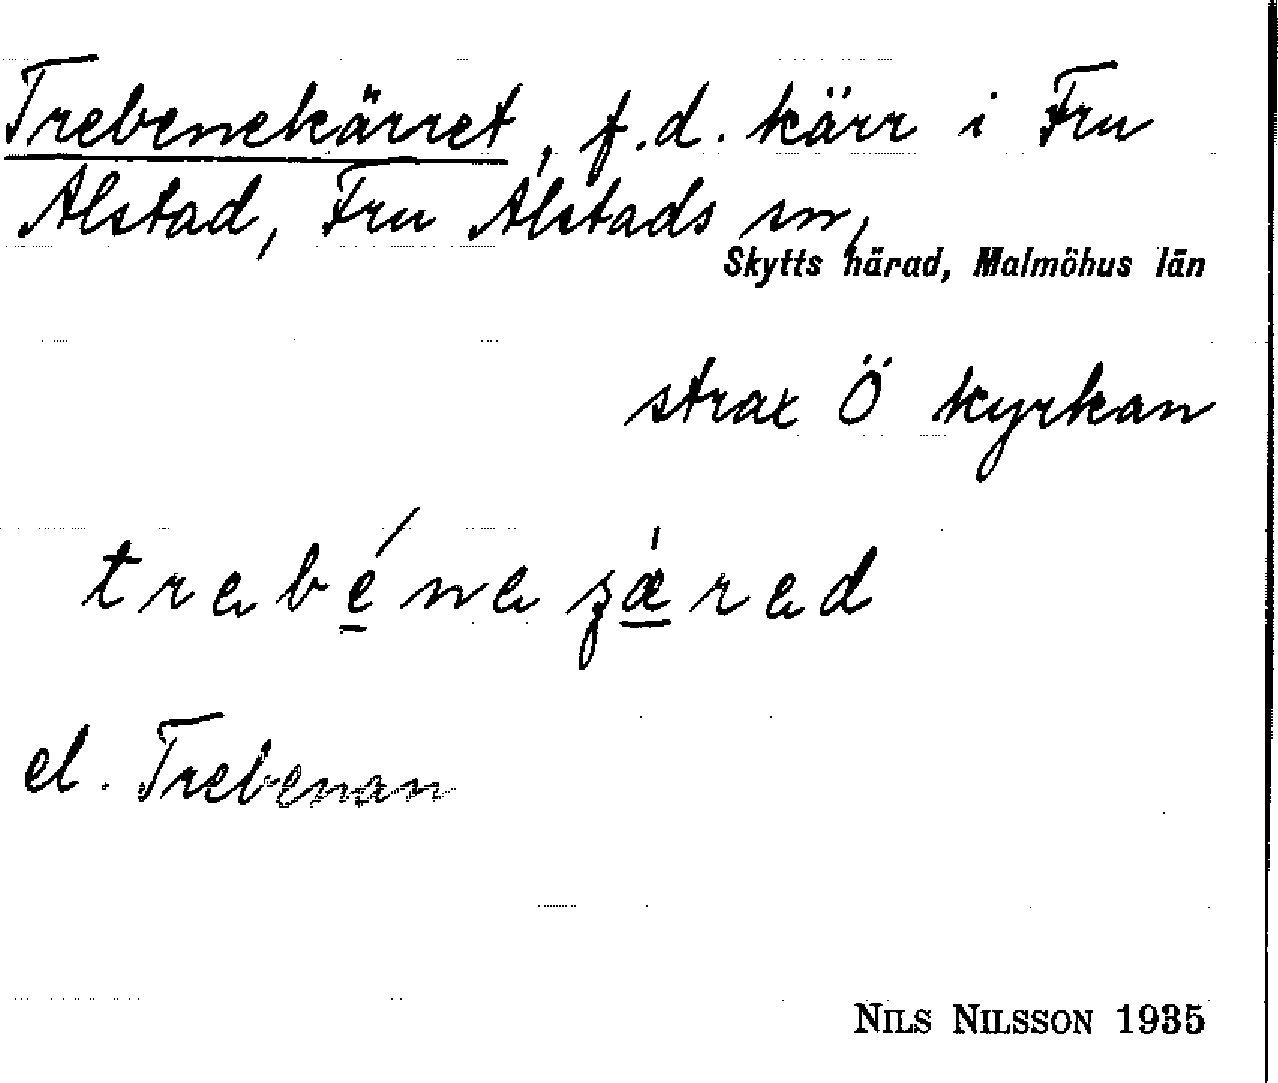 Trebenekärret, f.d. kärr i Fru
Alstad, Fru Alstads sn,
Skytts härad, Malmöhus län
strax Ö kyrkan
el. Trebenan
NILS NILSSON 1935